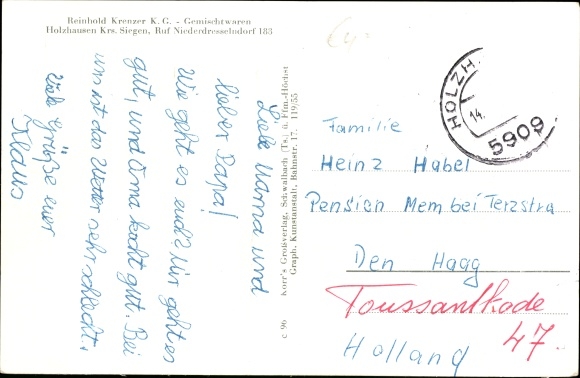 Reinhold Krenzer K. G. - Gemischtwaren
Holzhausen Krs. Siegen, Ruf Niederdresselndorf 183
Liebe Mama und
lieber Papa!
Wie geht es euch? Wir geht es
gut, und Oma kocht gut. Bei
uns ist das Wetter sehr schlecht.
Viele Grüße euer
Klaus
c 96 Korr's Großverlag, Schwalbach (Ts.) ü. Ffm.-Höchst
Graph. Kunstanstalt, Bahnstr. 17. 119/55
HOLZH
14.
5909
Familie
Heinz Habel
Pension Mem bei Terzstra
Den Haag
Toussantkade
47.
Holland